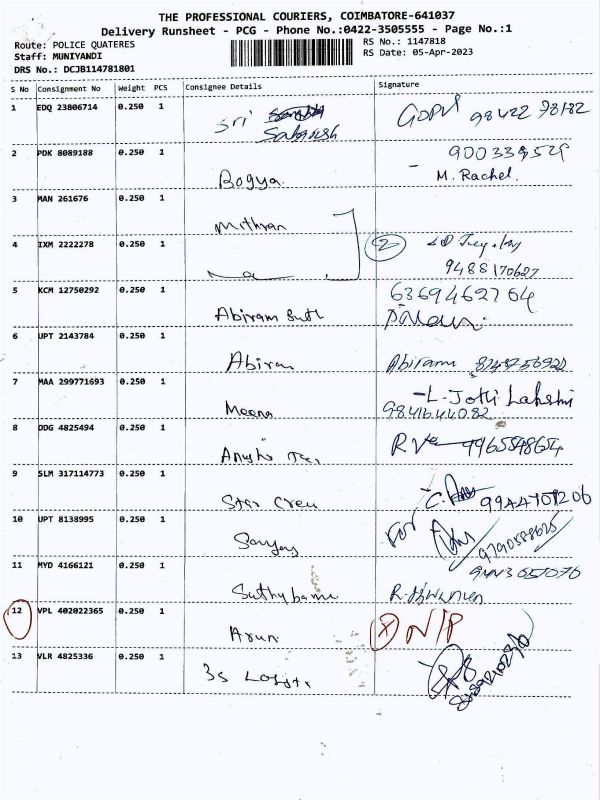 THE PROFESSIONAL COURIERS, COIMBATORE-641037
Delivery Runsheet - PCG - Phone No.:0422-3505555 - Page No.:1
Route: POLICE QUATERES
Staff: MUNIYANDI
DRS No.: DCJB114781801
RS No.: 1147818
RS Date: 05-Apr-2023
S No Consignment No Weight PCS Consignee Details Signature
1 EDQ 23806714 0.250 1 Sri Sabarish GOPI 98422 78182
2 PDK 8089188 0.250 1 Bogya. M. Rachel.
3 MAN 261676 0.250 1 Mithran
4 IXM 2222278 0.250 1 2 9488170627
5 KCM 12750292 0.250 1 Abiram 6369462764
6 UPT 2143784 0.250 1 Abiram Abirami
7 MAA 299771693 0.250 1 Meena -L. Jothi Lakshmi
9841644082
8 DDG 4825494 0.250 1 9965548654
9 SLM 317114773 0.250 1 Star Crew
10 UPT 8138995 0.250 1 Sanjay For 9790588625
11 MYD 4166121 0.250 1
12 VPL 402022365 0.250 1 Arun X N/P
13 VLR 4825336 0.250 1 3S